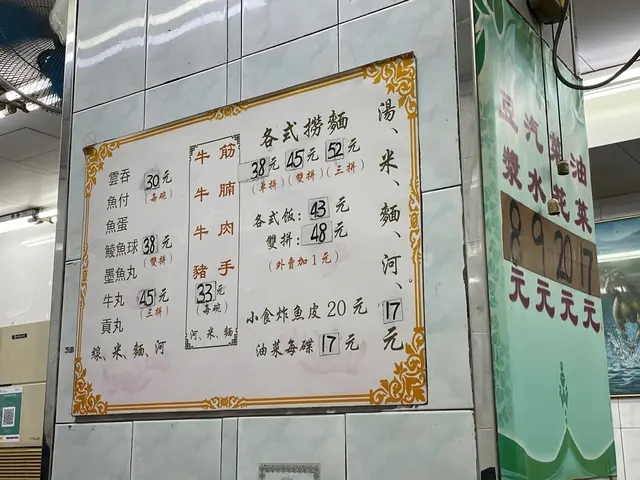 雲吞
魚付
魚蛋
鯪魚球
墨魚丸
牛丸
貢丸
30元
(每碗)
38元
(雙拼)
45元
(三拼)
線、米、麵、河
牛筋
牛腩
牛肉
豬手
33元
(每碗)
河、米、麵
各式撈麵
38元 45元 52元
(單拼) (雙拼) (三拼)
各式飯: 43元
雙拼: 48元
(外賣加1元)
小食炸魚皮20元
油菜每碟17元
湯、米、麵、河、17元
豆漿8元
汽水9元
20元
油菜17元